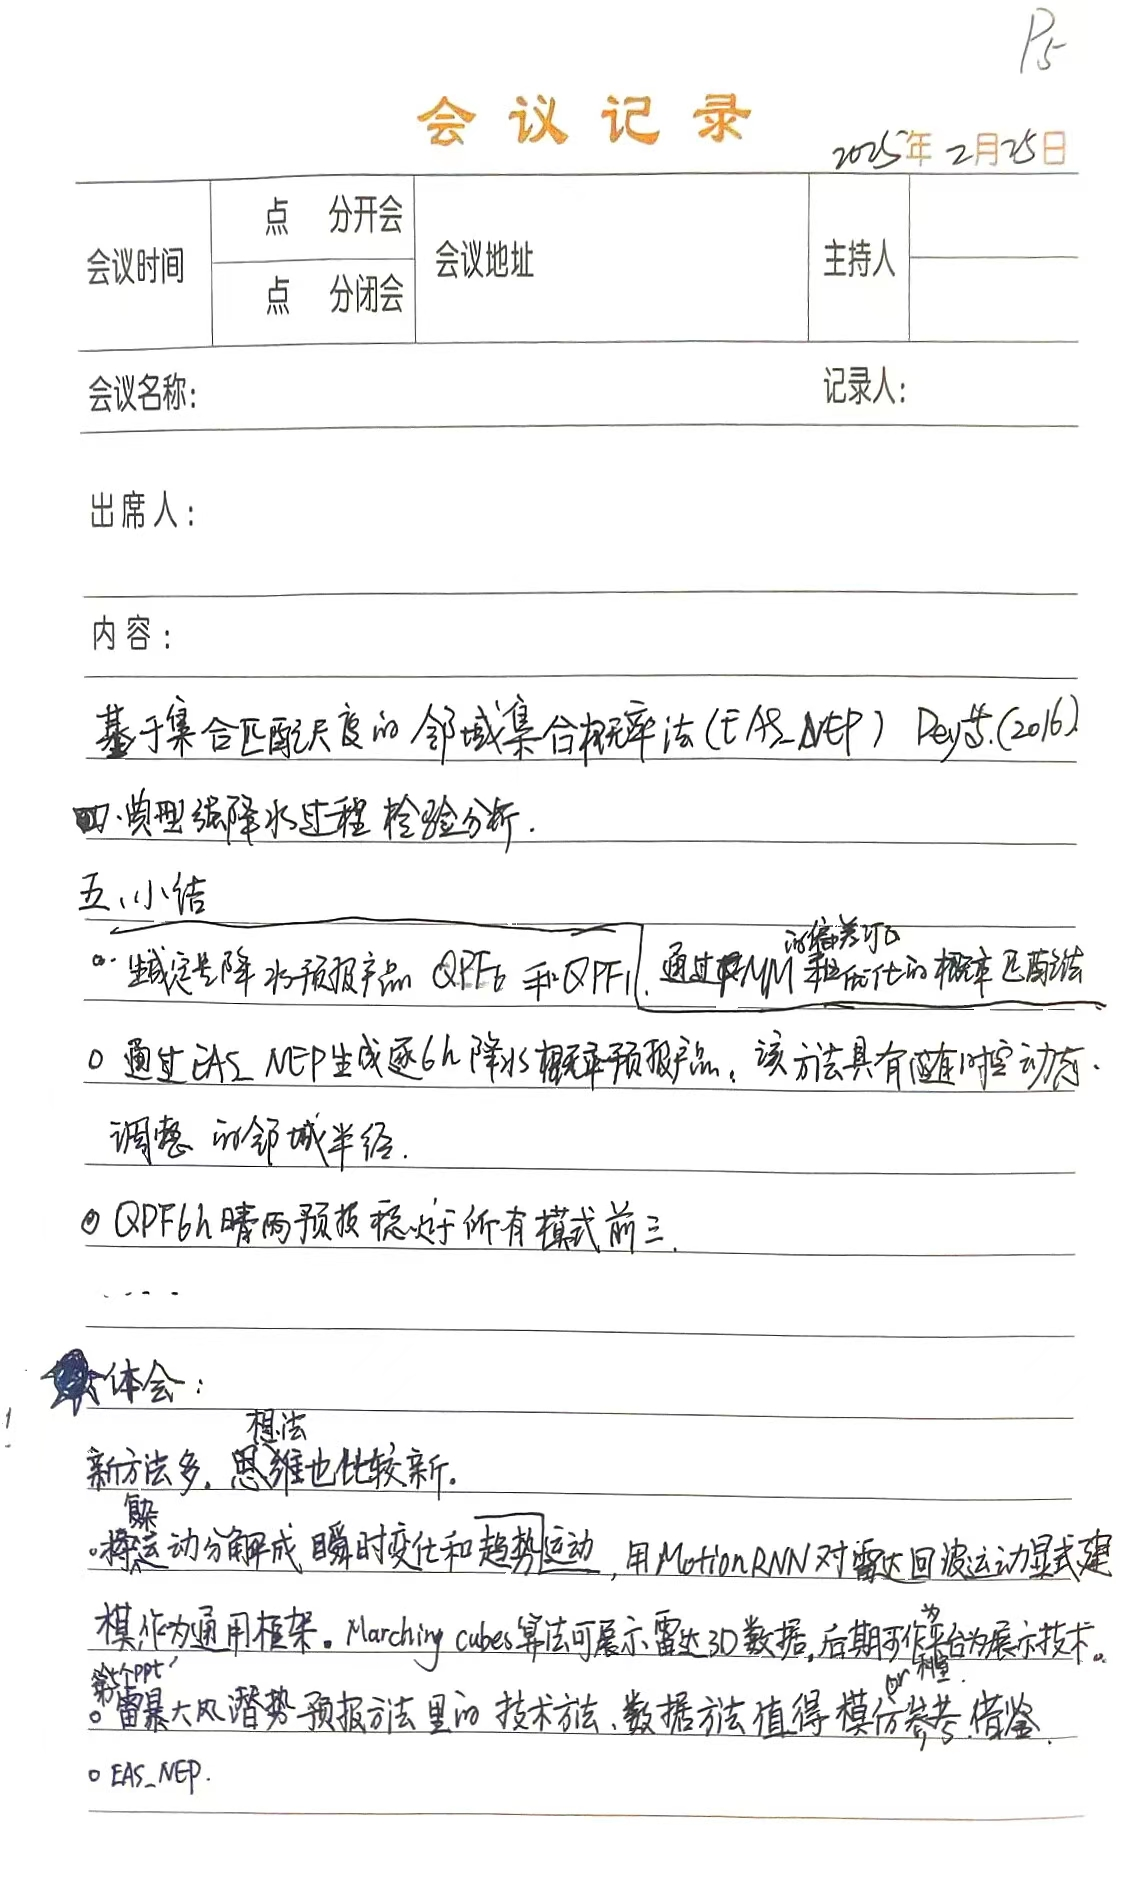 P5
会议记录
2025年2月25日
会议时间 点 分开会 会议地址 主持人
点 分闭会
会议名称: 记录人:
出席人:
内容:
基于集合匹配尺度的邻域集合概率法(EAS_NEP) Dey等.(2016).
四.典型强降水过程检验分析.
五、小结
的偏差订正
生成定量降水预报产品 QPF6 和QPF1. 通过 PMM 和优化的概率匹配法
通过EAS_NEP生成逐6h降水概率预报产品, 该方法具有随时空动态
调整的邻域半径.
QPF6h晴雨预报稳定于所有模式前三.
体会:
想法
新方法多, 思维也比较新.
复杂
将运动分解成瞬时变化和趋势运动, 用MotionRNN对雷达回波运动显式建
模作为通用框架. Marching cubes算法可展示雷达3D数据, 后期可作平台展示技术.
为
第5个ppt or 科室.
雷暴大风潜势预报方法里的技术方法、数据方法值得模仿参考.借鉴.
EAS_NEP.